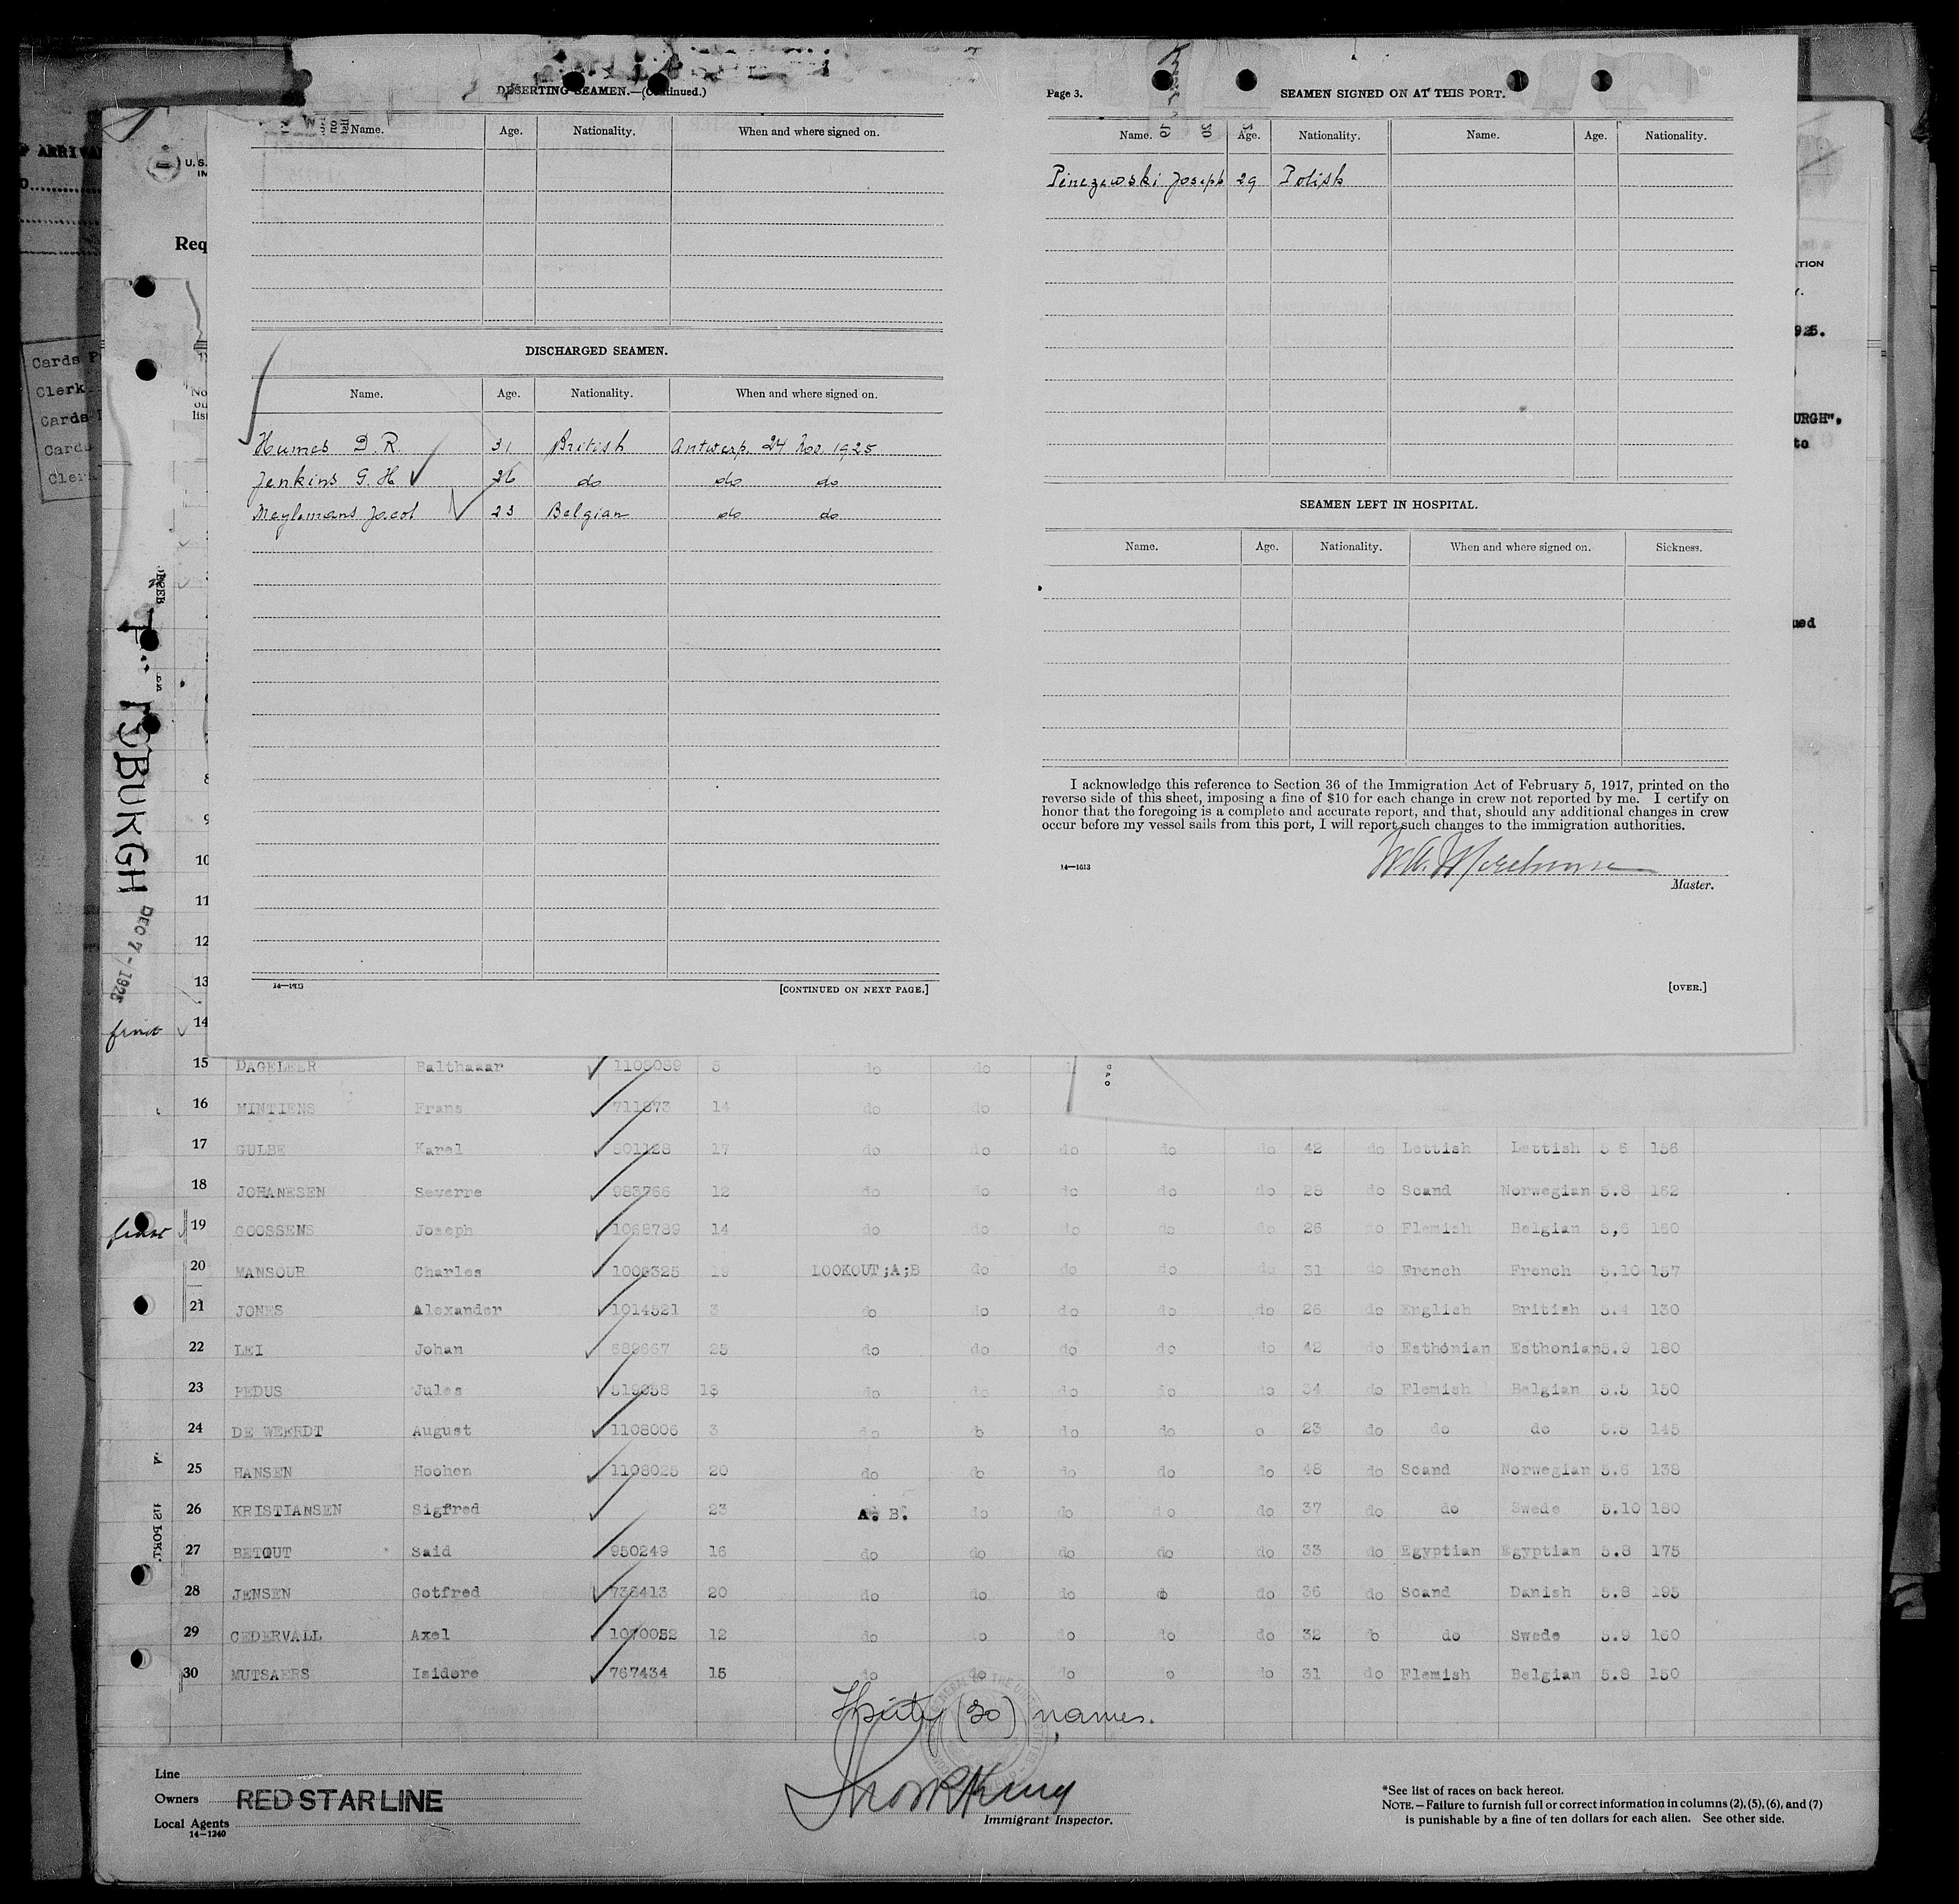 DESERTING SEAMEN.—(Continued.)
Name. Age. Nationality. When and where signed on.
DISCHARGED SEAMEN.
Name. Age. Nationality. When and where signed on.
Humes D. R. 31 British Antwerp. 24 Nov. 1925
Jenkins G. H 26 do do do
Meylemans Jacob 23 Belgian do do
14—1613
[CONTINUED ON NEXT PAGE.]
Page 3.
SEAMEN SIGNED ON AT THIS PORT.
Name. Age. Nationality. Name. Age. Nationality.
Joseph 29 Polish
SEAMEN LEFT IN HOSPITAL.
Name. Age. Nationality. When and where signed on. Sickness.
I acknowledge this reference to Section 36 of the Immigration Act of February 5, 1917, printed on the
reverse side of this sheet, imposing a fine of $10 for each change in crew not reported by me. I certify on
honor that the foregoing is a complete and accurate report, and that, should any additional changes in crew
occur before my vessel sails from this port, I will report such changes to the immigration authorities.
14—1613
Master.
[OVER.]
ARRIVA
U. S.
IM
Req
Cards P
Clerk
Cards
Cards
Clerk
No
ou
lis
TION
925.
URGH",
to
ued
TSBURGH DEC 7-1925
8
9
10
11
12
13
14
15 DAGELEER Balthaaar 1108089 3 do do
16 MINTIENS Frans 711873 14 do do
17 GULBE Karel 801128 17 do do do do do 42 do Lettish Lettish 5 6 156
18 JOHANESEN Severre 983766 12 do do do do do 28 do Scand Norwegian 5.8 162
19 GOOSSENS Joseph 1068789 14 do do do do do 26 do Flemish Belgian 5,6 160
20 MANSOUR Charles 1006325 19 LOOKOUT;A;B do do do do 31 do French French 5.10 157
21 JONES Alexander 1014521 3 do do do do do 26 do English British 5.4 130
22 LEI Johan 689667 25 do do do do do 42 do Esthonian Esthonian 5.9 180
23 PEDUS Jules 519058 18 do do do do do 34 do Flemish Belgian 5.5 150
24 DE WEERDT August 1108006 3 do do do do o 23 do do do 5.5 145
25 HANSEN Hoohen 1108025 20 do do do do do 48 do Scand Norwegian 5.6 138
26 KRISTIANSEN Sigfred 23 A. B. do do do do 37 do do Swede 5.10 180
27 BETOUT Said 950249 16 do do do do do 33 do Egyptian Egyptian 5.8 175
28 JENSEN Gotfred 738413 20 do do do do do 36 do Scand Danish 5.8 195
29 CEDERVALL Axel 1070052 12 do do do do do 32 do do Swede 5.9 160
30 MUTSAERS Isidore 767434 15 do do do do do 31 do Flemish Belgian 5.8 150
Thirty (30) names.
Line
Owners RED STAR LINE
Local Agents
14—1240
Immigrant Inspector.
*See list of races on back hereof.
NOTE.—Failure to furnish full or correct information in columns (2), (5), (6), and (7)
is punishable by a fine of ten dollars for each alien. See other side.